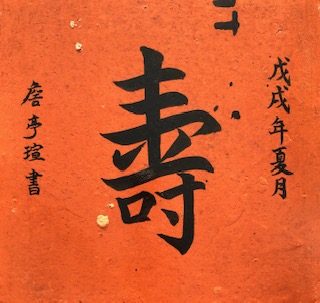 戊戌年夏月
壽
詹亭瑄書